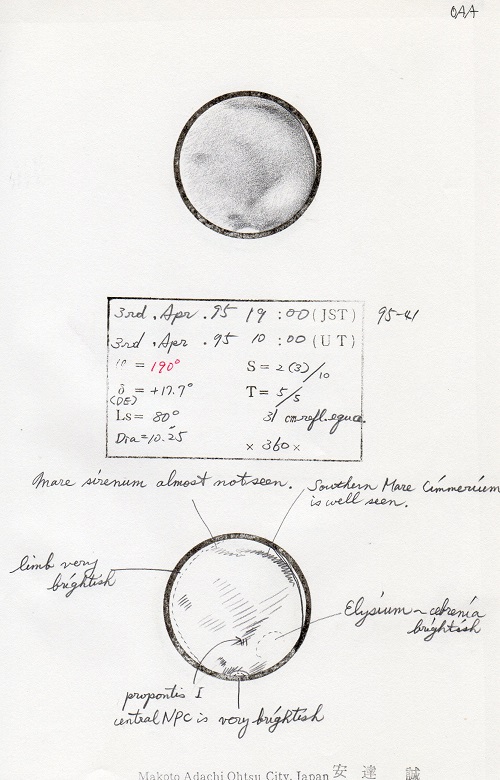 OAA
3rd. Apr. 95 19:00 (JST) 95-41
3rd. Apr. 95 10:00 (UT)
ω = 190° S = 2(3)/10
δ = +17.7° T = 5/5
(DE)
Ls = 80° 31 cm refl. equa.
Dia = 10.25" × 360 ×
Mare sirenum almost not seen.
Southern Mare Cimmerium
is well seen.
limb very
brightish
Elysium ~ cebrenia
brightish
propontis I
central NPC is very brightish
Makoto Adachi Ohtsu City, Japan 安達 誠